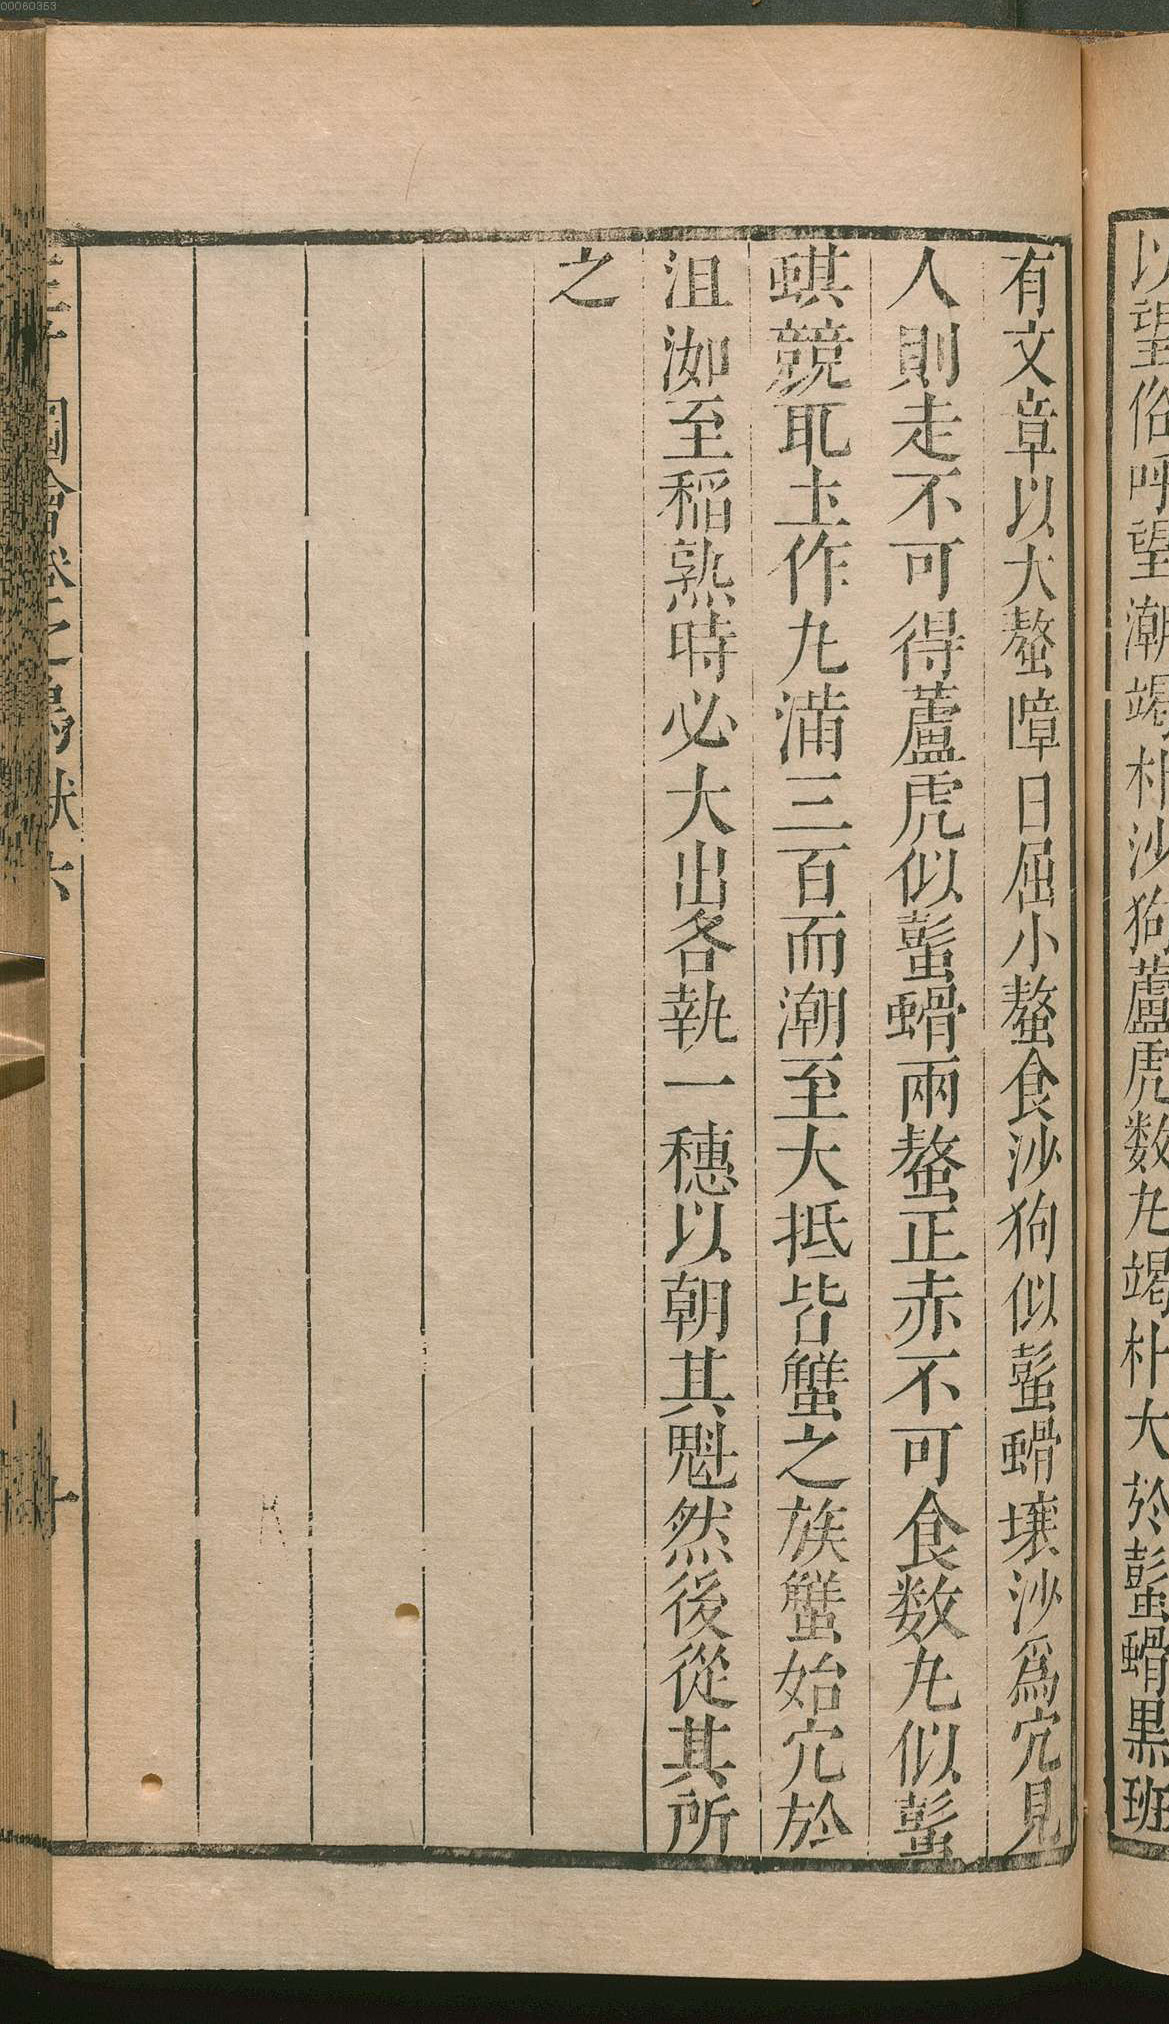 以望俗呼望潮竭朴沙狗蘆虎数丸竭朴大於蟛螖黒班
有文章以大螯障日屈小螯食沙狗似蟛螖壤沙爲穴見
人則走不可得蘆虎似蟛螖兩螯正赤不可食数丸似蟛
蜞競取土作丸滿三百而潮至大抵皆蟹之族蟹始穴於
沮洳至稻熟時必大出各執一穗以朝其魁然後從其所
之
圖會卷之鳥獸六
十
00060353